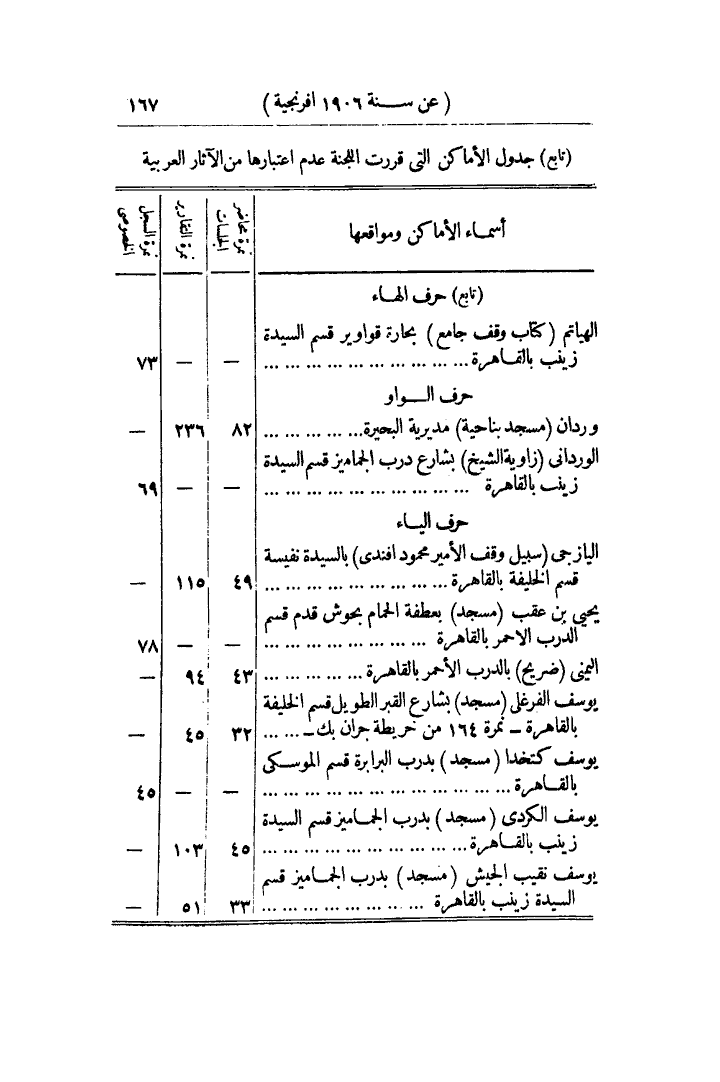 ( عن سنة ١٩٠٦ افرنجية ) ١٦٧
(تابع) جدول الأماكن التى قررت اللجنة عدم اعتبارها من الآثار العربية
أسماء الأماكن ومواقعها | نمرة محاضر الجلسات | نمرة التقارير | نمرة السجل الخصوصى
(تابع) حرف الهاء
الهياتم (كتاب وقف جامع) بحارة قواوير قسم السيدة
زينب بالقاهرة ... ... ... ... ... ... ... ... ... ... — — ٧٣
حرف الواو
وردان (مسجد بناحية) مديرية البحيرة... ... ... ... ... ٨٢ ٢٣٦ —
الوردانى (زاوية الشيخ) بشارع درب الجماميز قسم السيدة
زينب بالقاهرة ... ... ... ... ... ... ... ... ... ... — — ٦٩
حرف الياء
اليازجى (سبيل وقف الأمير محمود افندى) بالسيدة نفيسة
قسم الخليفة بالقاهرة ... ... ... ... ... ... ... ... ... ٤٩ ١١٥ —
يحيى بن عقب (مسجد) بعطفة الحمام بحوش قدم قسم
الدرب الاحمر بالقاهرة ... ... ... ... ... ... ... ... — — ٧٨
اليمنى (ضريح) بالدرب الأحمر بالقاهرة ... ... ... ... ... ٤٣ ٩٤ —
يوسف الفرغلى (مسجد) بشارع القبر الطويل قسم الخليفة
بالقاهرة – نمرة ١٦٤ من خريطة جران بك – ... ... ٣٢ ٤٥ —
يوسف كتخدا (مسجد) بدرب البرابرة قسم الموسكى
بالقاهرة ... ... ... ... ... ... ... ... ... ... ... ... — — ٤٥
يوسف الكردى (مسجد) بدرب الجماميز قسم السيدة
زينب بالقاهرة ... ... ... ... ... ... ... ... ... ... ٤٥ ١٠٣ —
يوسف نقيب الجيش (مسجد) بدرب الجماميز قسم
السيدة زينب بالقاهرة ... ... ... ... ... ... ... ... ٣٣ ٥١ —